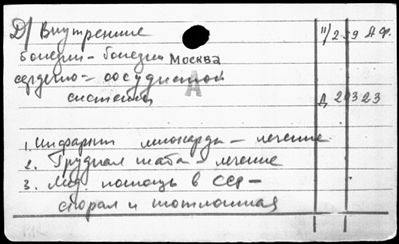 Д) Внутренние
болезни - болезни Москва
сердечно = сосудистой
системы
А
11/259 Дф.
Д 20323
1. Инфаркт миокарда - лечение
2. Грудная жаба - лечение
3. Мед помощь в ССР -
скорая и неотложная